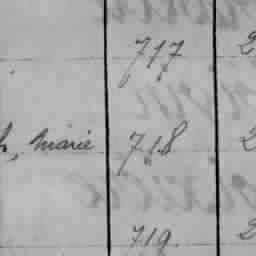 717 2
h, Marie 718 2
719. 2